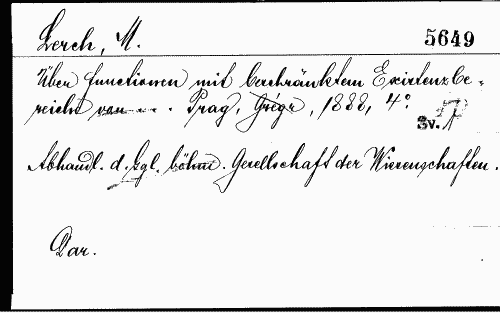 Lerch, M.
5649
Über Functionen mit beschränktem Existenzbe-
reiche von --- . Prag, Grégr, 1888, 4°.
Sv.
Abhandl. d. kgl. böhm. Gesellschaft der Wissenschaften.
Dar.